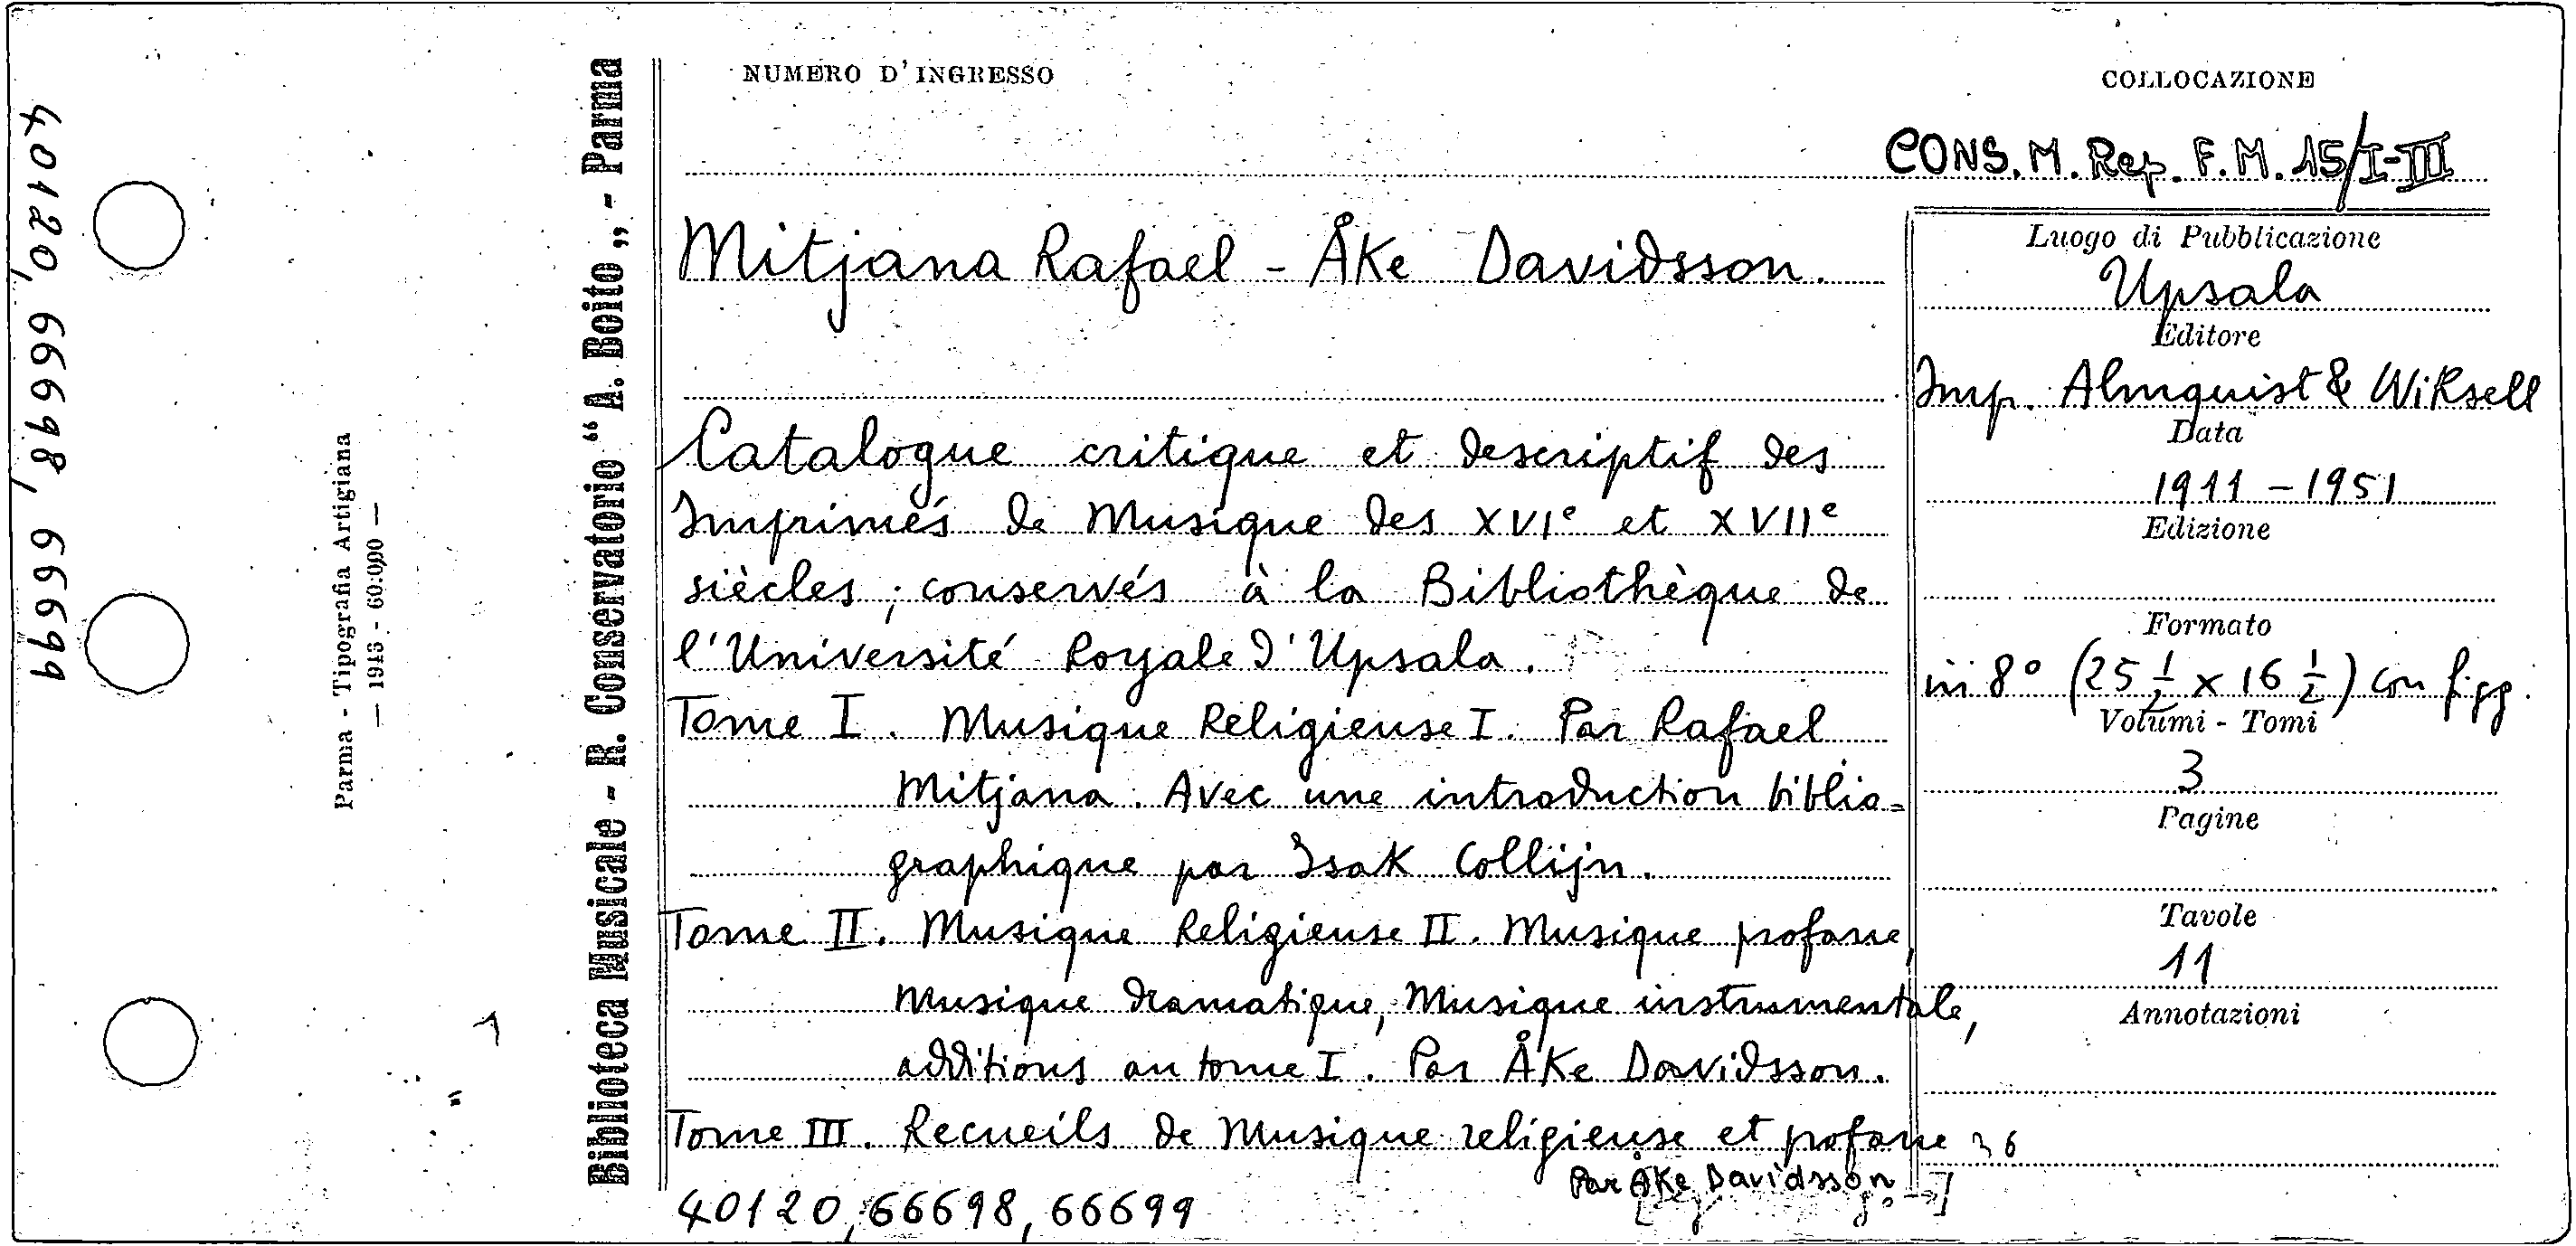 40120, 66698, 66699
Parma - Tipografia Artigiana
— 1943 - 60.000 —
Biblioteca Musicale - R. Conservatorio “A. Boito„ - Parma
NUMERO D'INGRESSO
COLLOCAZIONE
CONS. M. Rep. F. M. 15/I-III
Mitjana Rafael - Åke Davidsson.
Catalogue critique et descriptif des
Imprimés de Musique des XVIe et XVIIe
siècles; conservés à la Bibliothèque de
l'Université Royale d'Upsala.
Tome I. Musique Religieuse I. Par Rafael
Mitjana. Avec une introduction biblio=
graphique par Isak Collijn.
Tome II. Musique Religieuse II. Musique profane,
Musique dramatique, Musique instrumentale,
additions au tome I. Par Åke Davidsson.
Tome III. Recueils de Musique religieuse et profane
Par Åke Davidsson
40120, 66698, 66699
Luogo di Pubblicazione
Upsala
Editore
Imp. Almquist & Wiksell
Data
1911 - 1951
Edizione
Formato
in 8° (25 1/2 x 16 1/2) con figg.
Volumi - Tomi
3
Pagine
Tavole
11
Annotazioni